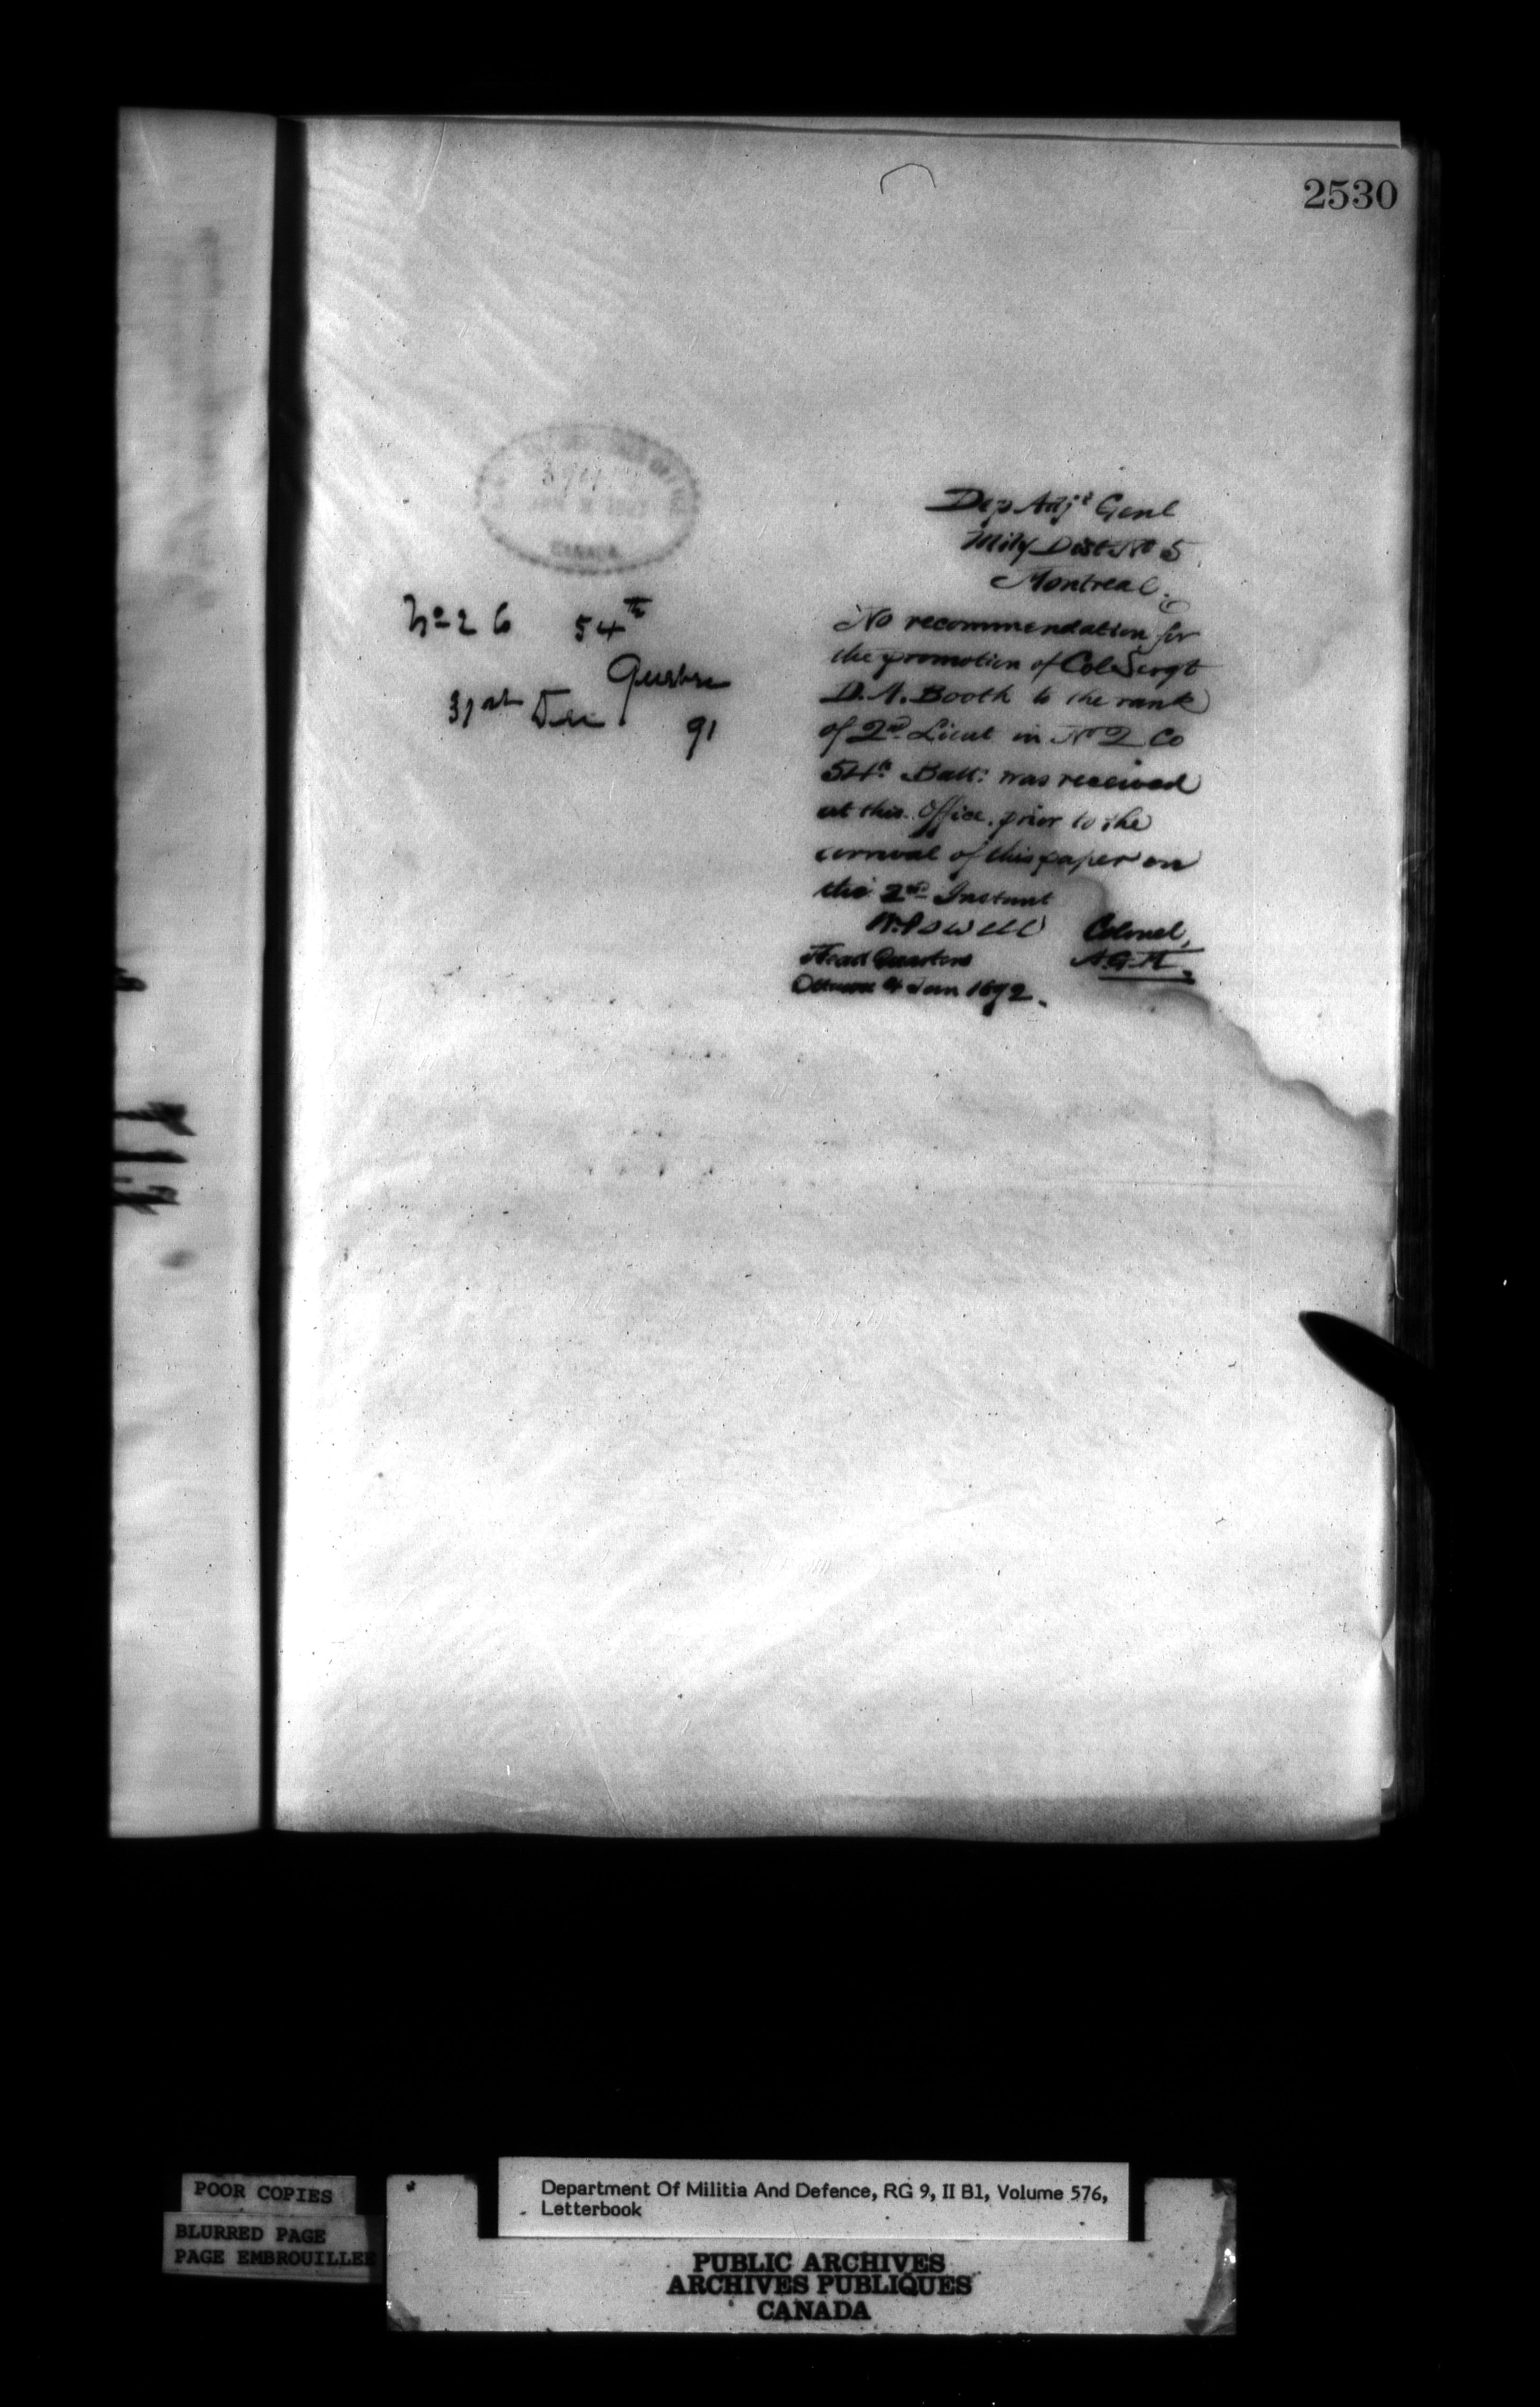 2530
CANADA
Dep Adjt Genl
Mily Dist No 5
Montreal.
No recommendation for
the promotion of Col Sergt
D. A. Booth to the rank
of 2nd Lieut in No 2 Co
54th Batt: was received
at this Office, prior to the
arrival of this paper on
the 2nd Instant
W. Powell Colonel,
A.G.M.
Head Quarters
Ottawa 4 Jan 1892.
No 2 C 54th
31st Dec 91
POOR COPIES
BLURRED PAGE
PAGE EMBROUILLEE
Department Of Militia And Defence, RG 9, II B1, Volume 576,
Letterbook
PUBLIC ARCHIVES
ARCHIVES PUBLIQUES
CANADA